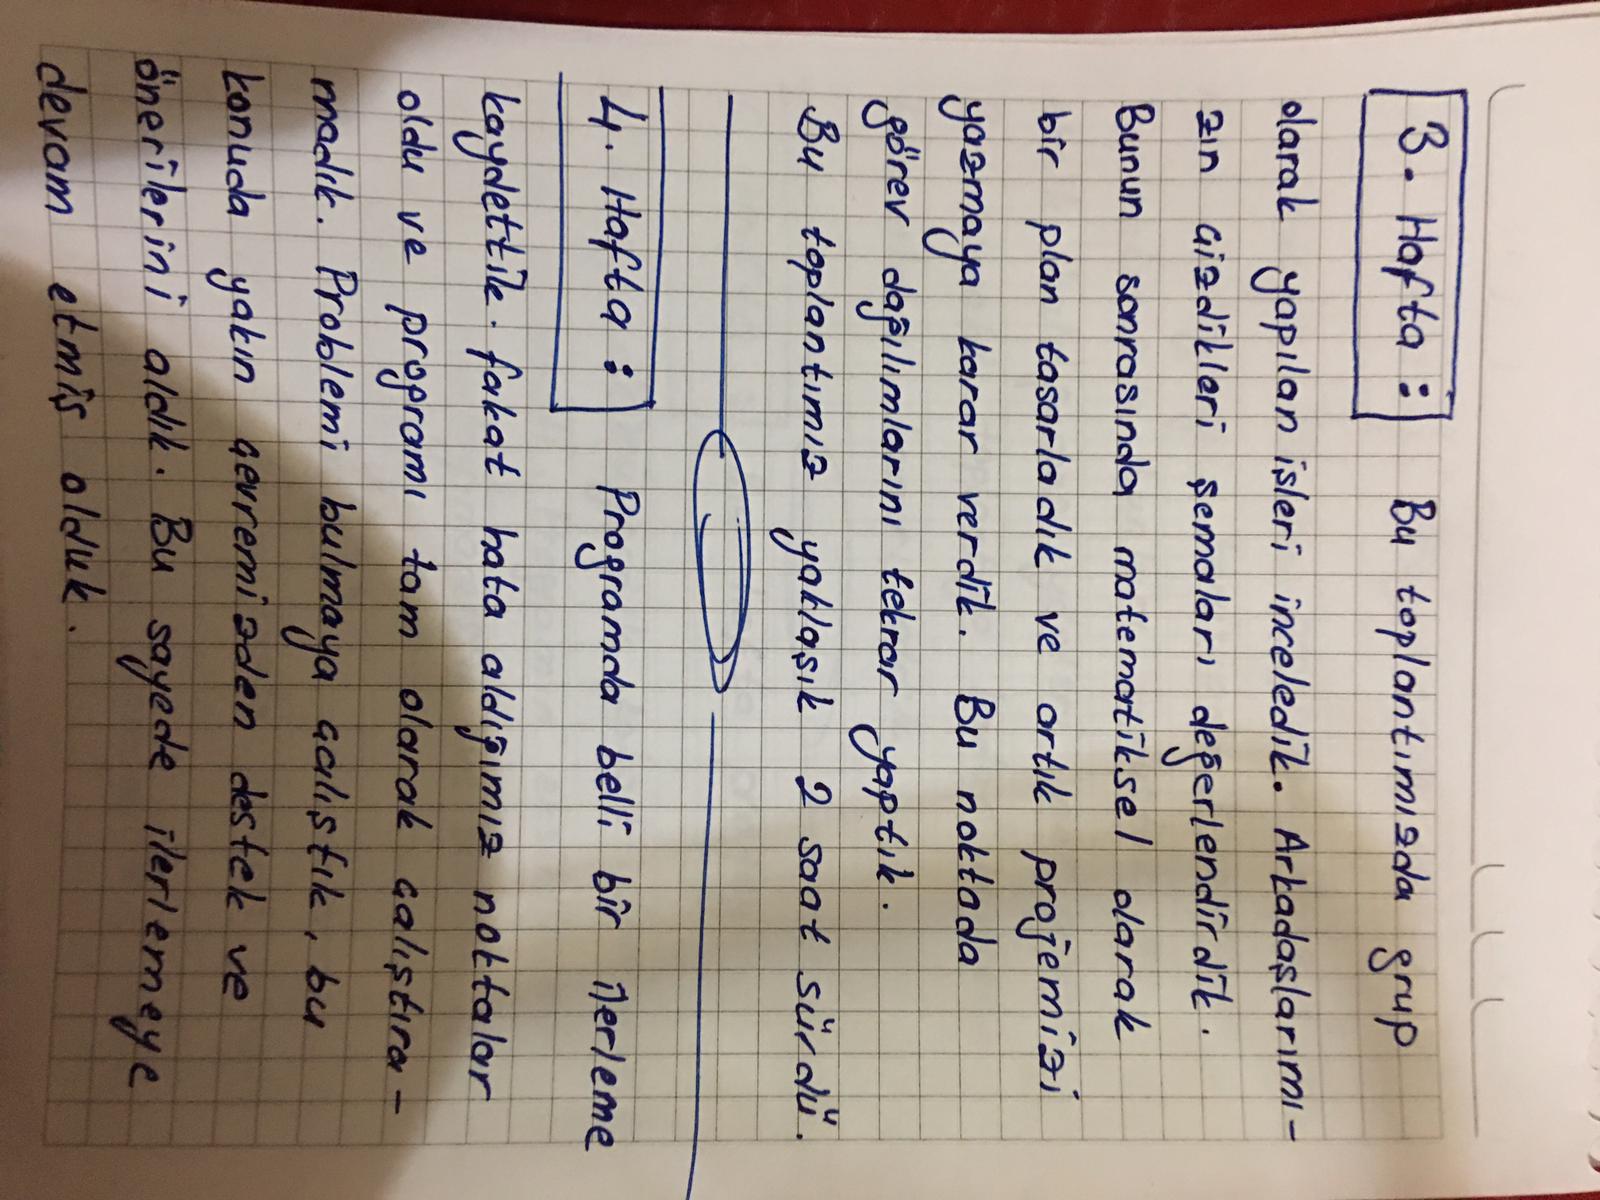 3. Hafta : Bu toplantımızda grup
olarak yapılan işleri inceledik. Arkadaşlarımı-
zın çizdikleri şemaları değerlendirdik.
Bunun sonrasında matematiksel olarak
bir plan tasarladık ve artık projemizi
yazmaya karar verdik. Bu noktada
görev dağılımlarını tekrar yaptık.
Bu toplantımız yaklaşık 2 saat sürdü.
4. Hafta : Programda belli bir ilerleme
kaydettik. fakat hata aldığımız noktalar
oldu ve programı tam olarak çalıştıra-
madık. Problemi bulmaya çalıştık, bu
konuda yakın çevremizden destek ve
önerilerini aldık. Bu sayede ilerlemeye
devam etmiş olduk.